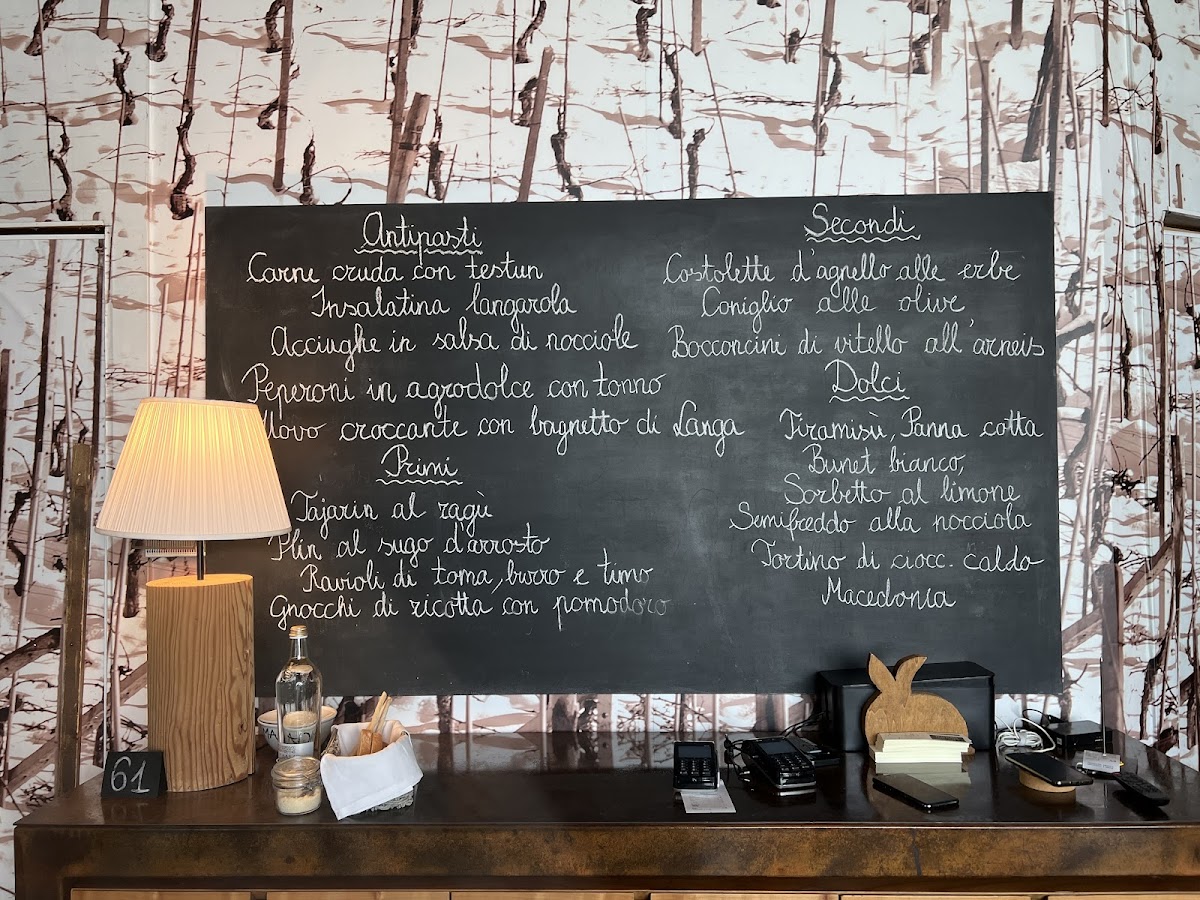 Antipasti
Carne cruda con testun
Insalatina langarola
Acciughe in salsa di nocciole
Peperoni in agrodolce con tonno
Uovo croccante con bagnetto di Langa
Primi
Tajarin al ragù
Plin al sugo d'arrosto
Ravioli di toma, burro e timo
Gnocchi di ricotta con pomodoro
Secondi
Costolette d'agnello alle erbe
Coniglio alle olive
Bocconcini di vitello all'arneis
Dolci
Tiramisù, Panna cotta
Bunet bianco,
Sorbetto al limone
Semifreddo alla nocciola
Tortino di ciocc. caldo
Macedonia
61